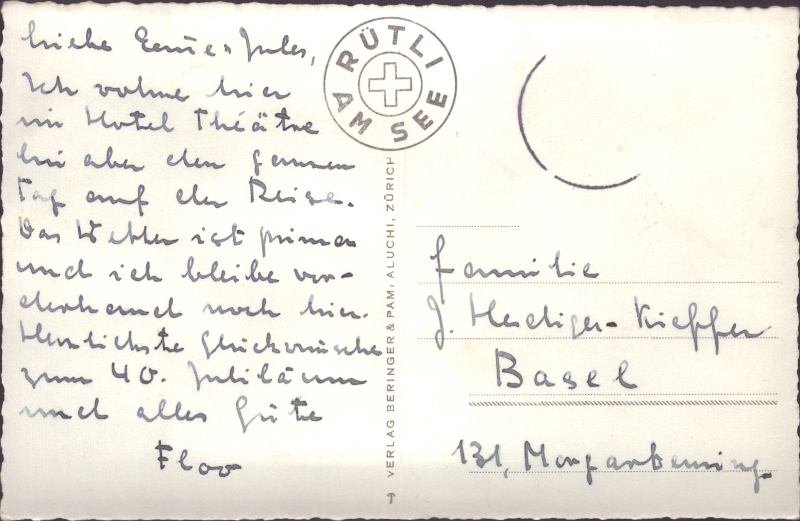 Ich wohne hier
im Hotel Théâtre
bin aber den ganzen
Tag auf der Reise.
Das Wetter ist prima
und ich bleibe vor-
derhand noch hier.
Herzlichste Glückwünsche
zum 40. Jubiläum
und alles Gute
RÜTLI
AM SEE
VERLAG BERINGER & PAM, ALUCHI, ZÜRICH
Familie
J. Hediger-Kieffer
Basel
131,